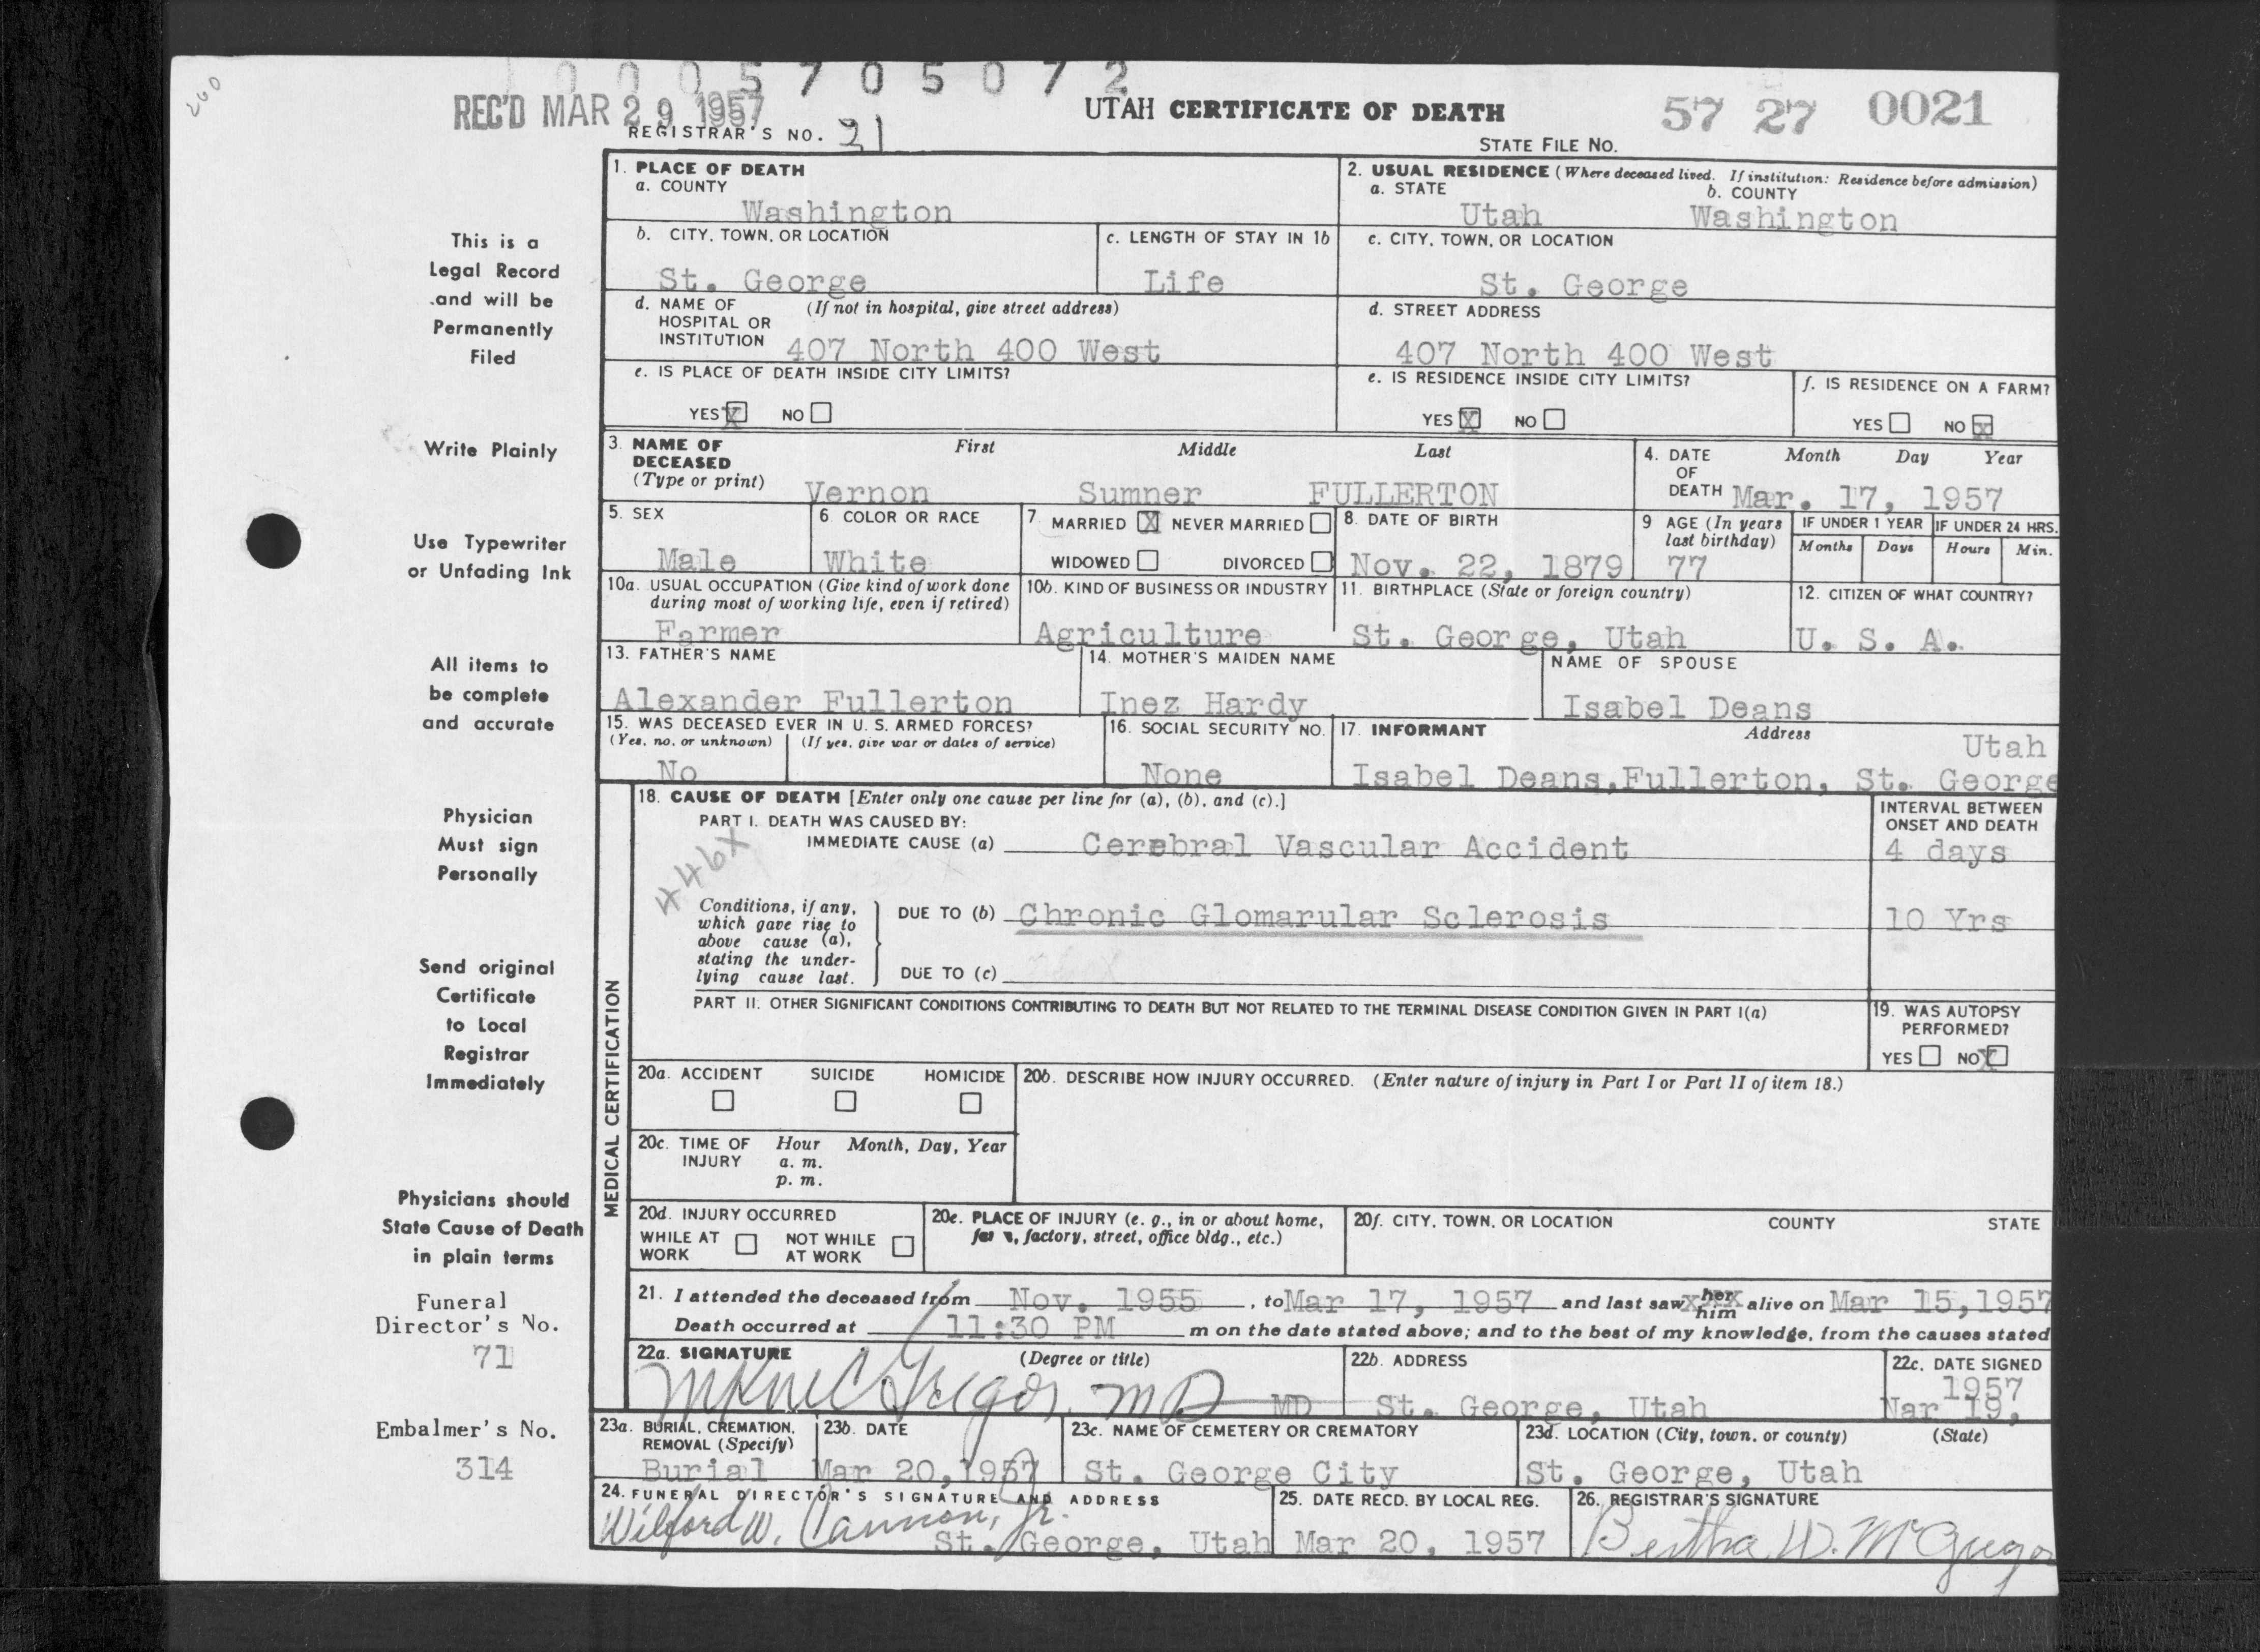 1 0 0 0 5 7 0 5 0 7 2
REC'D MAR 29 1957
UTAH CERTIFICATE OF DEATH
57 27 0021
REGISTRAR'S NO. 21
STATE FILE NO.
1. PLACE OF DEATH
a. COUNTY
Washington
2. USUAL RESIDENCE (Where deceased lived. If institution: Residence before admission)
a. STATE b. COUNTY
Utah Washington
b. CITY, TOWN, OR LOCATION
St. George
c. LENGTH OF STAY IN 1b
Life
c. CITY, TOWN, OR LOCATION
St. George
d. NAME OF (If not in hospital, give street address)
HOSPITAL OR
INSTITUTION 407 North 400 West
d. STREET ADDRESS
407 North 400 West
e. IS PLACE OF DEATH INSIDE CITY LIMITS?
YES X NO
e. IS RESIDENCE INSIDE CITY LIMITS?
YES X NO
f. IS RESIDENCE ON A FARM?
YES NO X
3. NAME OF First Middle Last
DECEASED
(Type or print) Vernon Sumner FULLERTON
4. DATE Month Day Year
OF
DEATH Mar. 17, 1957
5. SEX
Male
6. COLOR OR RACE
White
7. MARRIED X NEVER MARRIED
WIDOWED DIVORCED
8. DATE OF BIRTH
Nov. 22, 1879
9 AGE (In years
last birthday)
77
IF UNDER 1 YEAR IF UNDER 24 HRS.
Months Days Hours Min.
10a. USUAL OCCUPATION (Give kind of work done
during most of working life, even if retired)
Farmer
10b. KIND OF BUSINESS OR INDUSTRY
Agriculture
11. BIRTHPLACE (State or foreign country)
St. George, Utah
12. CITIZEN OF WHAT COUNTRY?
U. S. A.
13. FATHER'S NAME
Alexander Fullerton
14. MOTHER'S MAIDEN NAME
Inez Hardy
NAME OF SPOUSE
Isabel Deans
15. WAS DECEASED EVER IN U. S. ARMED FORCES?
(Yes, no, or unknown) (If yes, give war or dates of service)
No
16. SOCIAL SECURITY NO.
None
17. INFORMANT Address
Utah
Isabel Deans,Fullerton, St. George
18. CAUSE OF DEATH [Enter only one cause per line for (a), (b), and (c).]
PART I. DEATH WAS CAUSED BY:
IMMEDIATE CAUSE (a) Cerebral Vascular Accident
INTERVAL BETWEEN
ONSET AND DEATH
4 days
446X
Conditions, if any,
which gave rise to
above cause (a),
stating the under-
lying cause last.
DUE TO (b) Chronic Glomarular Sclerosis
10 Yrs
DUE TO (c)
PART II. OTHER SIGNIFICANT CONDITIONS CONTRIBUTING TO DEATH BUT NOT RELATED TO THE TERMINAL DISEASE CONDITION GIVEN IN PART I(a)
19. WAS AUTOPSY
PERFORMED?
YES NO X
20a. ACCIDENT SUICIDE HOMICIDE
20b. DESCRIBE HOW INJURY OCCURRED. (Enter nature of injury in Part I or Part II of item 18.)
20c. TIME OF Hour Month, Day, Year
INJURY a. m.
p. m.
20d. INJURY OCCURRED
WHILE AT NOT WHILE
WORK AT WORK
20e. PLACE OF INJURY (e. g., in or about home,
factory, street, office bldg., etc.)
20f. CITY, TOWN, OR LOCATION COUNTY STATE
21. I attended the deceased from Nov. 1955, to Mar 17, 1957 and last saw her him alive on Mar 15,1957
Death occurred at 11:30 PM m on the date stated above; and to the best of my knowledge, from the causes stated
22a. SIGNATURE (Degree or title)
McGregor, MD MD
22b. ADDRESS
St. George, Utah
22c. DATE SIGNED
1957
Nar 19,
23a. BURIAL, CREMATION,
REMOVAL (Specify)
Burial
23b. DATE
Mar 20,1957
23c. NAME OF CEMETERY OR CREMATORY
St. George City
23d. LOCATION (City, town, or county) (State)
St. George, Utah
24. FUNERAL DIRECTOR'S SIGNATURE AND ADDRESS
Wilford W. Cannon, Jr.
St. George, Utah
25. DATE RECD. BY LOCAL REG.
Mar 20, 1957
26. REGISTRAR'S SIGNATURE
Bertha W. McGregor
MEDICAL CERTIFICATION
This is a
Legal Record
and will be
Permanently
Filed
Write Plainly
Use Typewriter
or Unfading Ink
All items to
be complete
and accurate
Physician
Must sign
Personally
Send original
Certificate
to Local
Registrar
Immediately
Physicians should
State Cause of Death
in plain terms
Funeral
Director's No.
71
Embalmer's No.
314